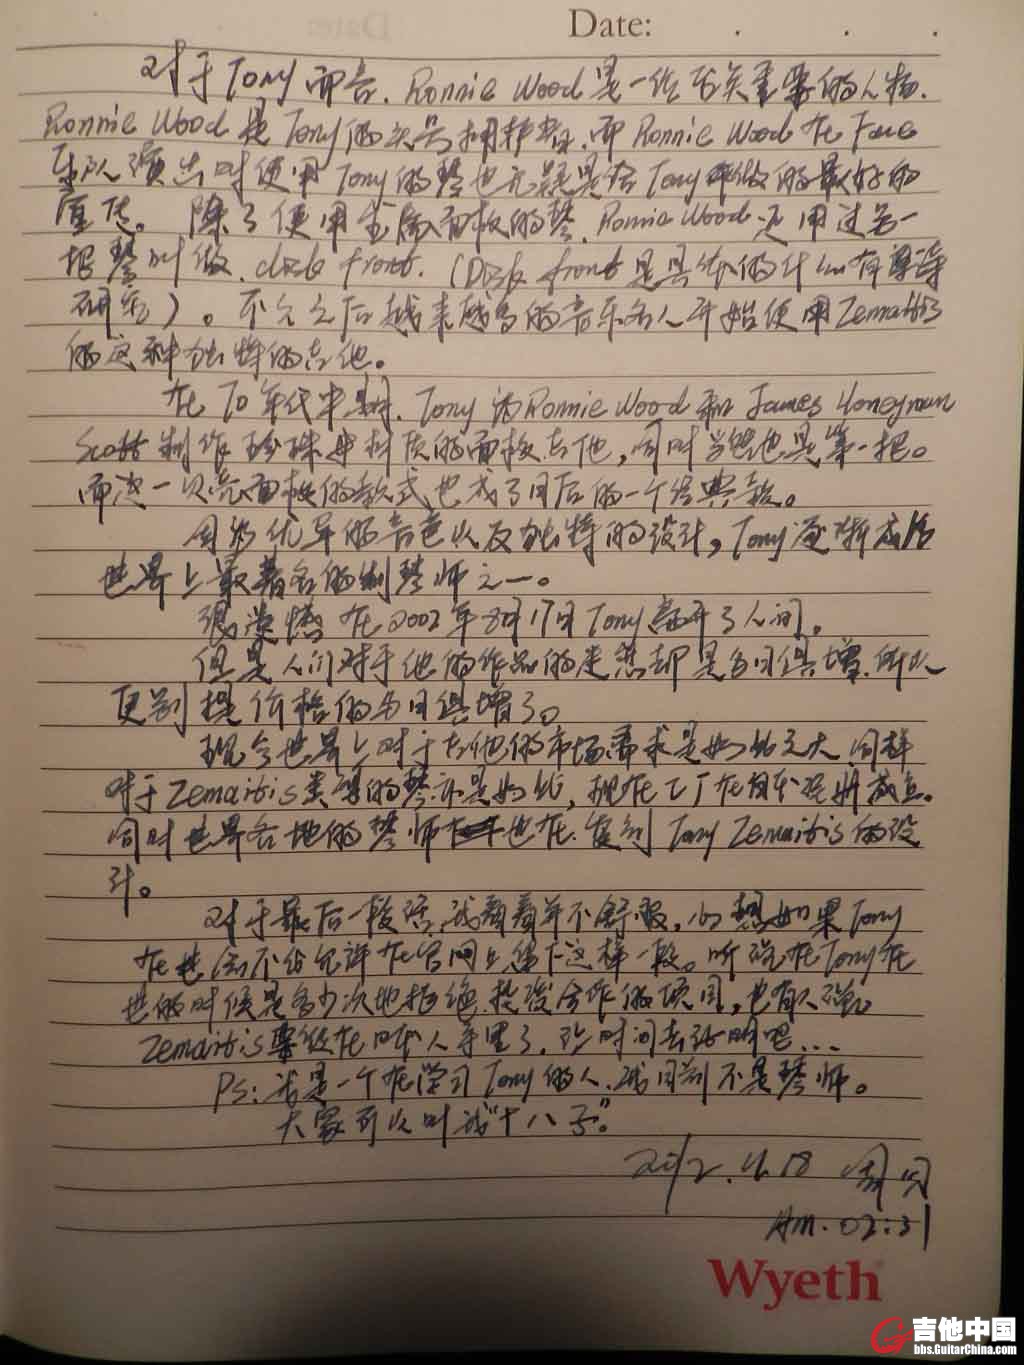 Date: . . .
对于Tony而言.Ronnie Wood是一位至关重要的人物.
Ronnie Wood是Tony的头号拥护者.而Ronnie Wood在Face
乐队演出时使用Tony的琴也无疑是给Tony做的最好的
宣传。除了使用金属面板的琴.Ronnie Wood还用过另一
根琴叫做.disk front.(Disk front是具体的什么有等
研究)。不久之后越来越多的音乐名人开始使用Zemaitis
的这种独特的吉他。
在70年代中期.Tony为Ronnie Wood和James Honeyman
Scott制作珍珠母材质的面板吉他,同时当然也是第一把。
而这一贝壳面板的款式也成了日后的一个经典款。
因为优异的音色以及独特的设计,Tony逐渐成为
世界上最著名的制琴师之一。
很遗憾在2002年8月17日Tony离开了人间.
但是人们对于他的作品的迷恋却是与日俱增.所以
更别提价格的与日俱增了。
现今世界上对于吉他的市场需求是如此之大.同样
对于Zemaitis类型的琴亦是如此,现在工厂在日本也成立.
同时世界各地的琴师也在.复制Tony Zemaitis的设
计。
对于最后一段话,我看着并不舒服,心想如果Tony
在世会不会允许在官网上留下这样一段。听说在Tony在
世的时候是多少次地拒绝.投资合作的项目,也有人说
Zemaitis要毁在日本人手里了.让时间去证明吧...
Ps:我是一个在学习Tony的人.我目前不是琴师。
大家可以叫我"十八子"。
2012.4.18
Am.02:31
Wyeth
吉他中国
bbs.GuitarChina.com